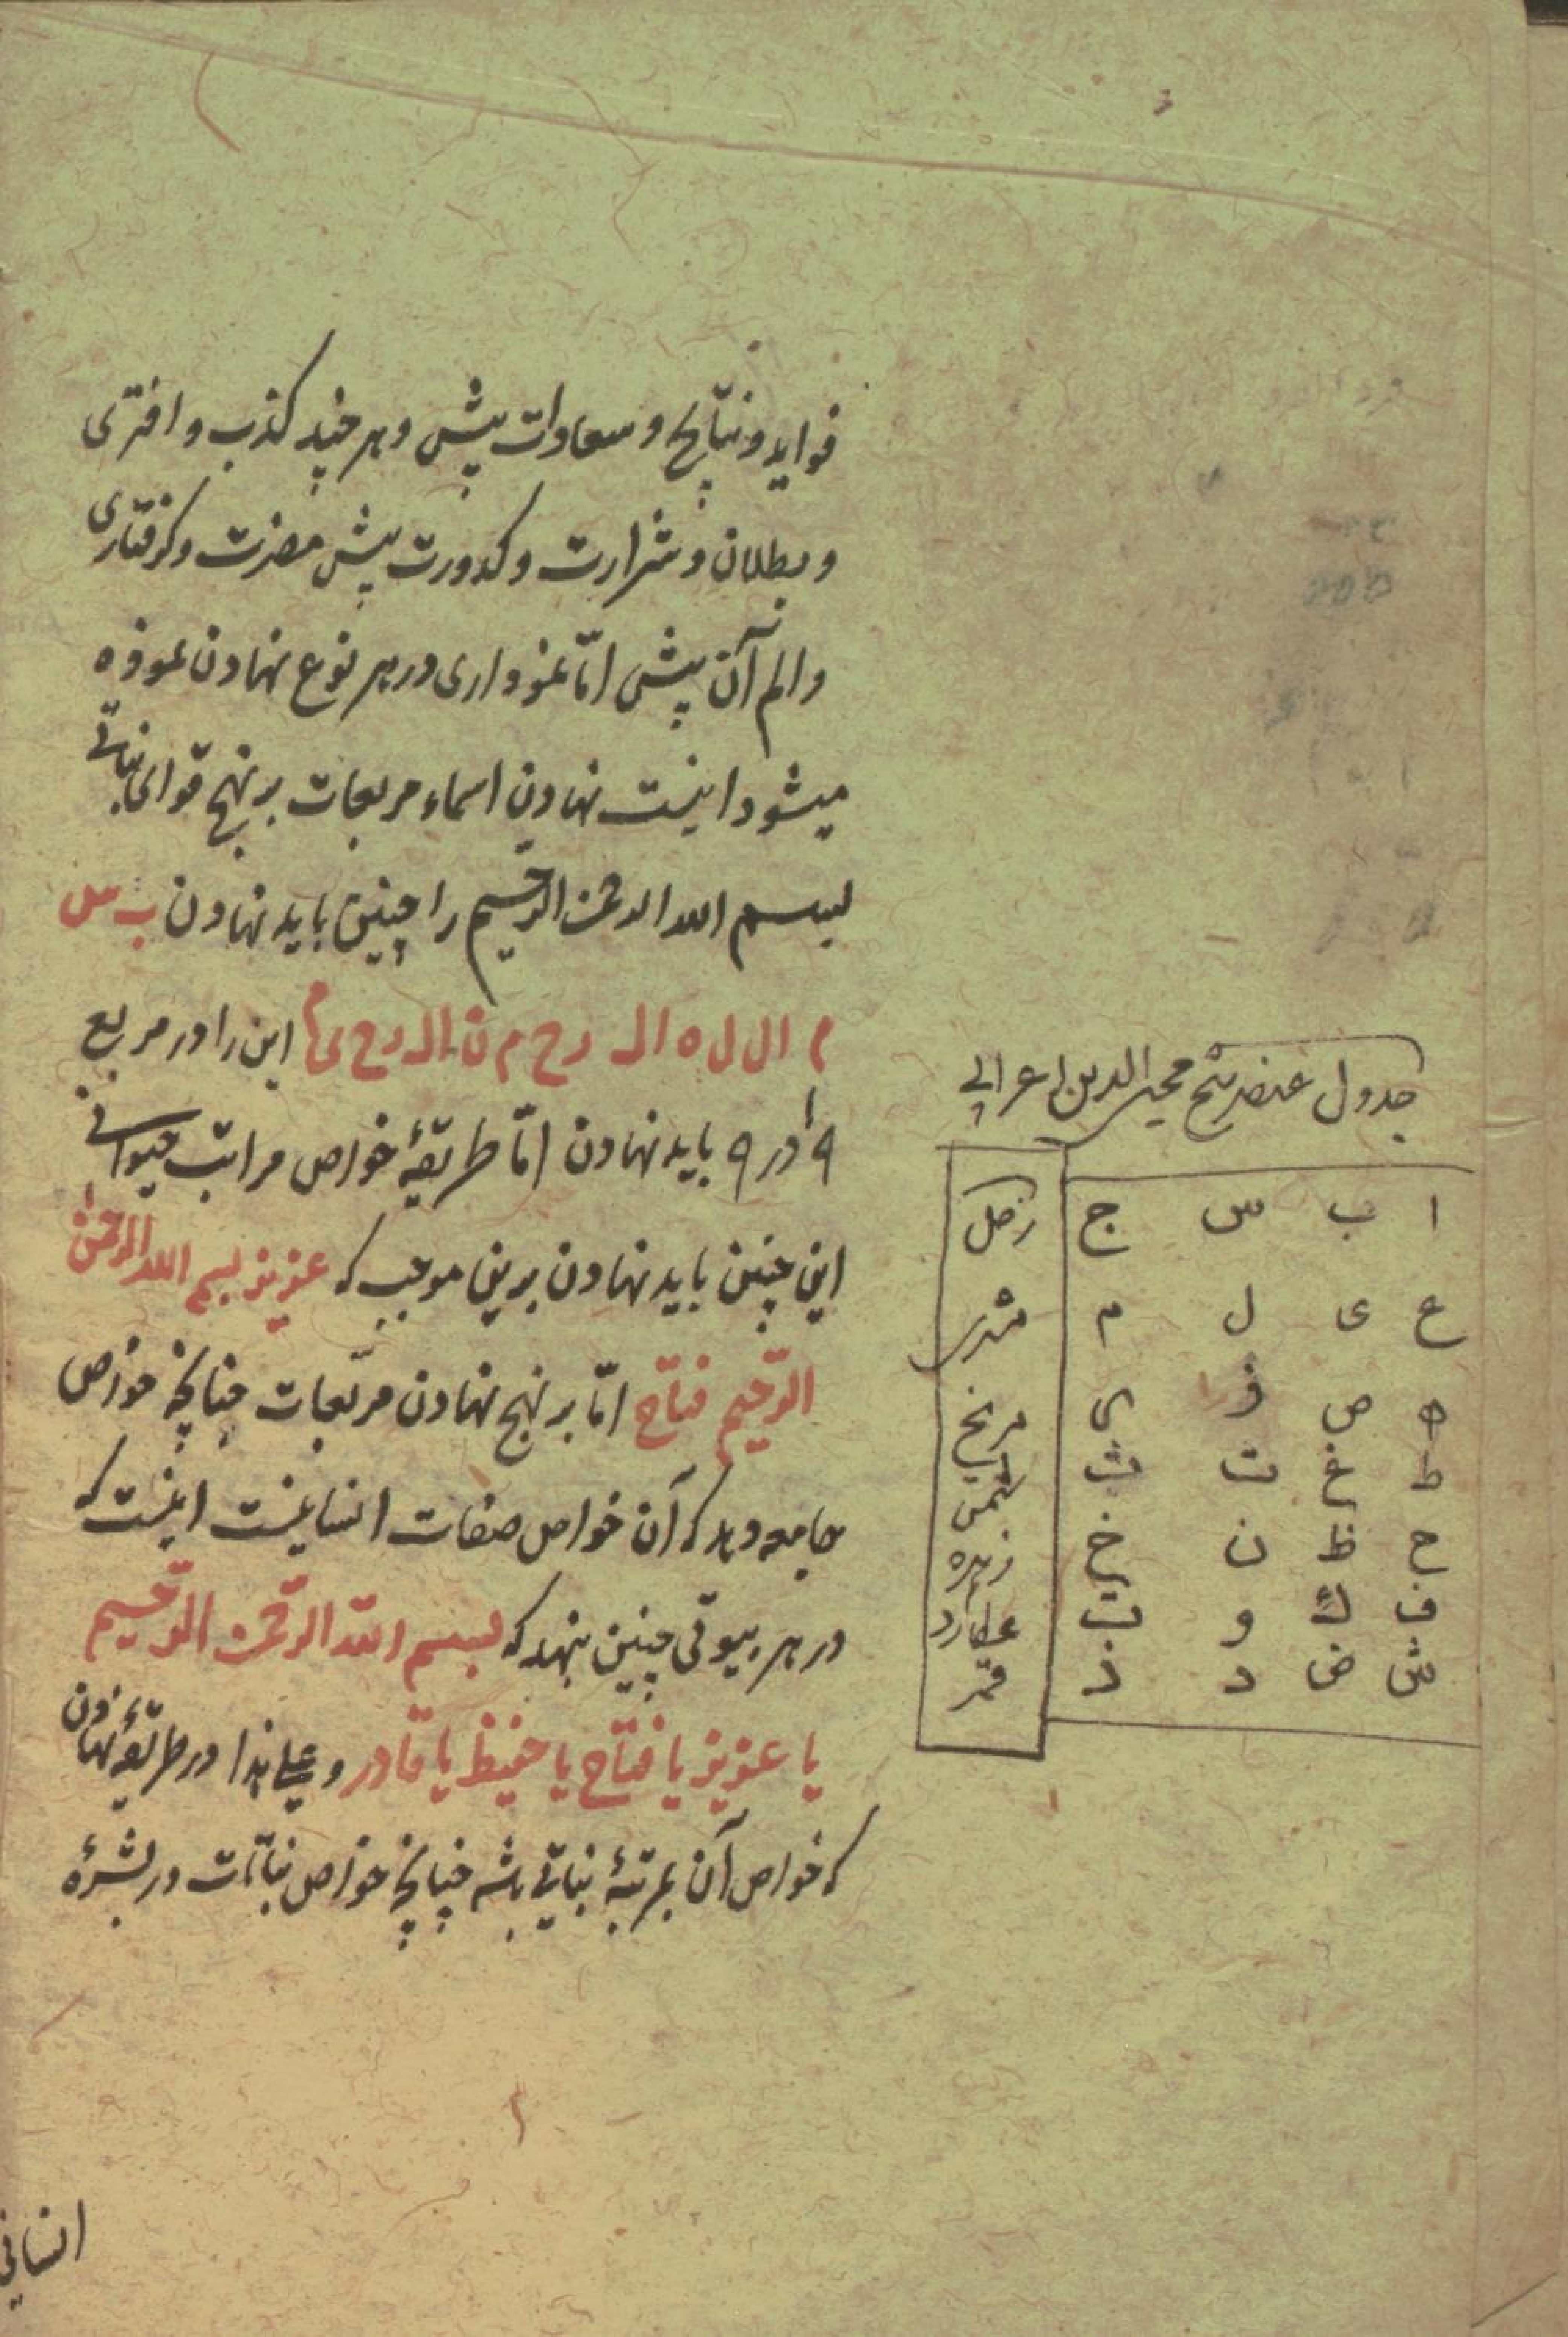 فواید و نتایج و سعادات پیش و هر چند کذب و افتری
و بطلان و شرارت و کدورت پیش مضرت و کرفتاری
و الم آن پیش امّا نمزواری در هر نوع نهادن نموذه
میشود اینست نهادن اسماء مربعات بر نهج قوای نباتی
بسم الله الرحمن الرحیم را چنین باید نهادن ب س
م ال ل ه ال رح م ن ال رح ی م این را در مربع
۹ در ۹ باید نهادن امّا طریقهٔ خواص مراتب حیوانی
این چنین باید نهادن برین موجب که عزیز بسم الله الرحمن
الرّحیم فتاح امّا بر نهج نهادن مربّعات چنانچه خواص
بجامعه دهد که آن خواص صفات انسانیست اینست که
در هر بیوتی چنین بنهد که بسم الله الرّحمن الرّحیم
یا عزیز یا فتّاح یا حفیظ یا قادر و علی هذا در طریقهٔ نهادن
که خواص آن بمرتبهٔ نباتی باشد چنانچه خواص نباتات در بشرهٔ
انسانی
جدول عنصر شیخ محیی الدین اعرابی
ا ب س ج زحل
ع ی ل م مشتری
ه ص ز ی مریخ
ط غ ت ث شمس
ح ظ ن خ زهره
ف ك و ت عطارد
ش ض د ذ قمر